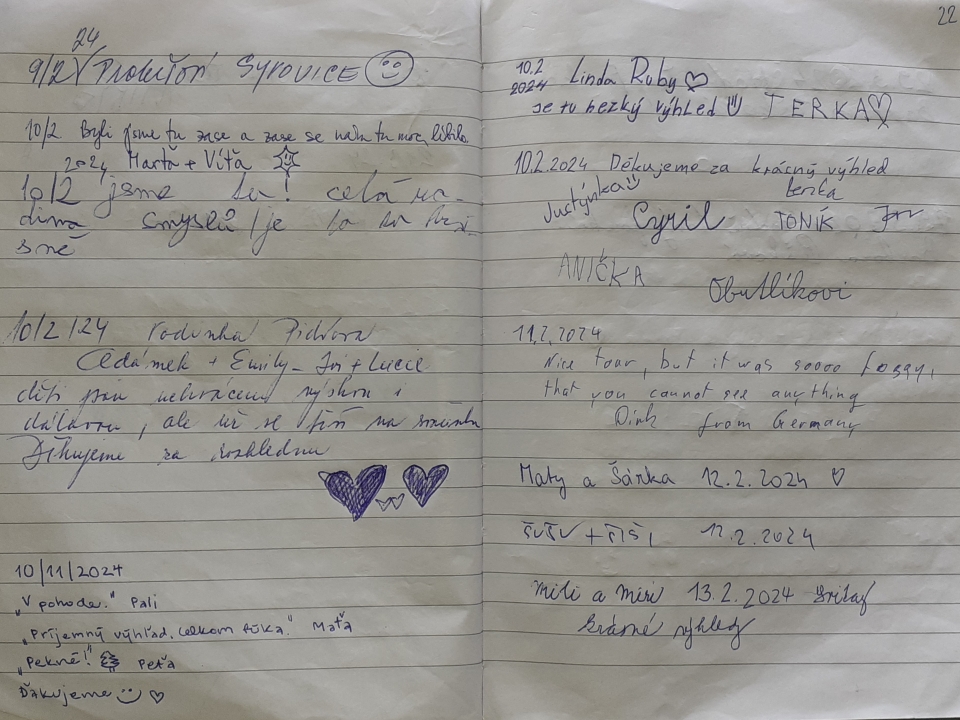 24
9/2 PROKEŠOVI SYROVICE
10/2 Byli jsme tu zase a zase se nám tu moc líbilo.
2024 Marťa + Víťa
10/2 jsme tu! celá ro-
dina smyslů / je to tu
sné
10/2/24 Rodinka
Adámek + Emily - Jiří + Lucie
děti jsou výškou i
dálavou, ale už se těší na
Děkujeme za rozhlednu
10/11/2024
„V pohode." Pali
„Príjemný výhľad. Celkom fúka." Maťa
„Pekné!" Peťa
Ďakujeme
22
10.2 Linda Ruby
2024
Je tu hezký výhled TERKA
10.2.2024 Děkujeme za krásný výhled
Justýnka terka
Cyril TONÍK
ANIČKA
11.2.2024
Nice tour, but it was soooo foggy,
that you cannot see anything
Dirk from Germany
Maty a Šárka 12.2.2024
ŠUŠU + ŠIŠI 12.2.2024
Mili a Miri 13.2.2024
krásné výhledy